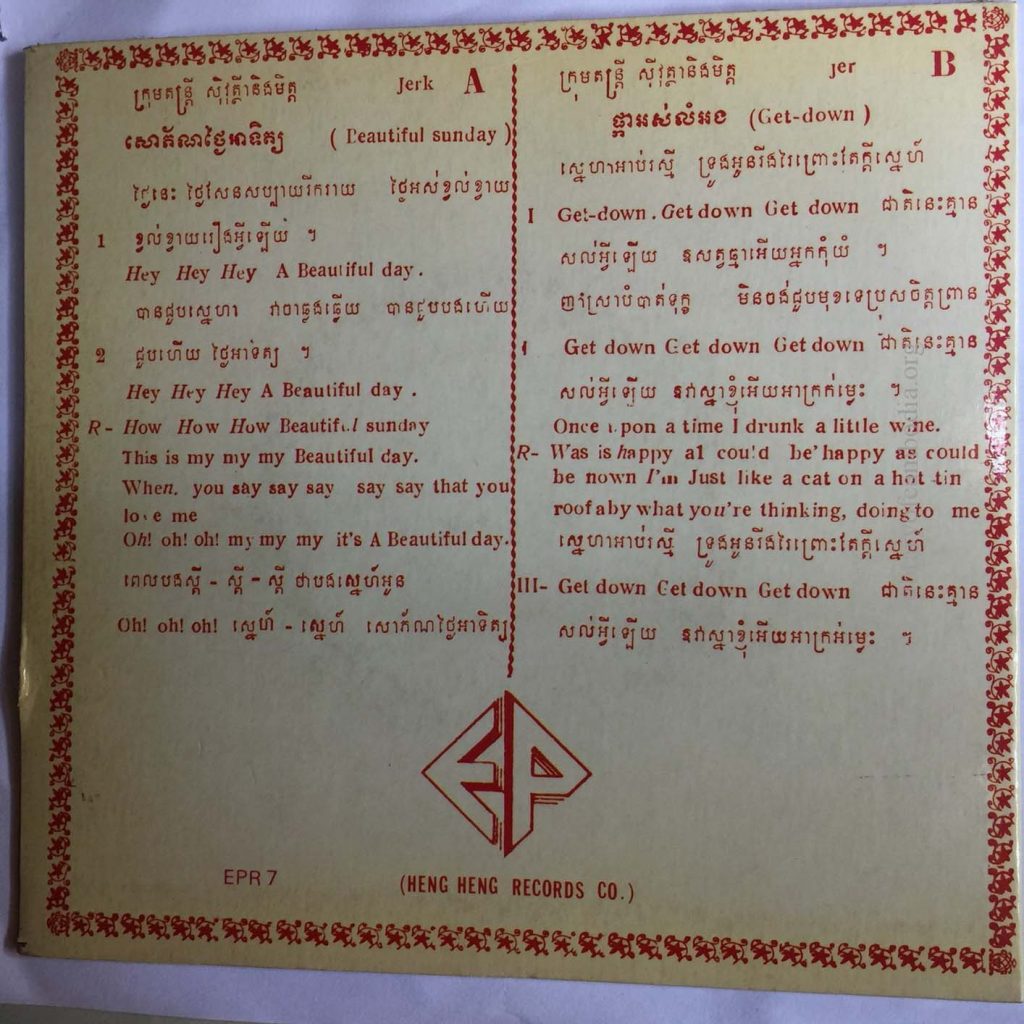 ក្រុមតន្ត្រី ស៊ីវុត្ថានិងមិត្ត Jerk A
សោភ័ណថ្ងៃអាទិត្យ (Beautiful sunday)
ថ្ងៃនេះ ថ្ងៃសែនសប្បាយរីករាយ ថ្ងៃអស់ខ្វល់ខ្វាយ
1 ខ្វល់ខ្វាយរឿងអ្វីឡើយ ។
Hey Hey Hey A Beautiful day.
បានជួបស្នេហា វាចាឆ្លងឆ្លើយ បានជួបបងហើយ
2 ជួបហើយ ថ្ងៃអាទិត្យ ។
Hey Hey Hey A Beautiful day.
R- How How How Beautiful sunday
This is my my my Beautiful day.
When. you say say say say say that you
love me
Oh! oh! oh! my my my it's A Beautiful day.
ពេលបងស្តី - ស្តី - ស្តី ថាបងស្នេហ៍អូន
Oh! oh! oh! ស្នេហ៍ - ស្នេហ៍ សោភ័ណថ្ងៃអាទិត្យ
ក្រុមតន្ត្រី ស៊ីវុត្ថានិងមិត្ត jer B
ផ្កាអស់លំអង (Get-down)
ស្នេហាអាប់រស្មី ទ្រូងអូនរីងរៃព្រោះតែក្តីស្នេហ៍
I Get-down. Get down Get down ជាតិនេះគ្មាន
សល់អ្វីឡើយ ឱសត្វធ្មាអើយអ្នកកុំយំ ។
ញាំស្រាបំបាត់ទុក្ខ មិនចង់ជួបមុខទេប្រុសចិត្តព្រាន
I Get down Get down Get down ជាតិនេះគ្មាន
សល់អ្វីឡើយ ឱវាស្នាខ្ញុំអើយអាក្រក់ម្លេះ ។
Once upon a time I drunk a little wine.
R- Was is happy a1 could be'happy as could
be nown I'm Just like a cat on a hot tin
roof aby what you're thinking, doing to me
ស្នេហាអាប់រស្មី ទ្រូងអូនរីងរៃព្រោះតែក្តីស្នេហ៍
III- Get down Get down Get down ជាតិនេះគ្មាន
សល់អ្វីឡើយ ឱវាស្នាខ្ញុំអើយអាក្រអ់ម្លេះ ។
EP
EPR 7
(HENG HENG RECORDS CO.)